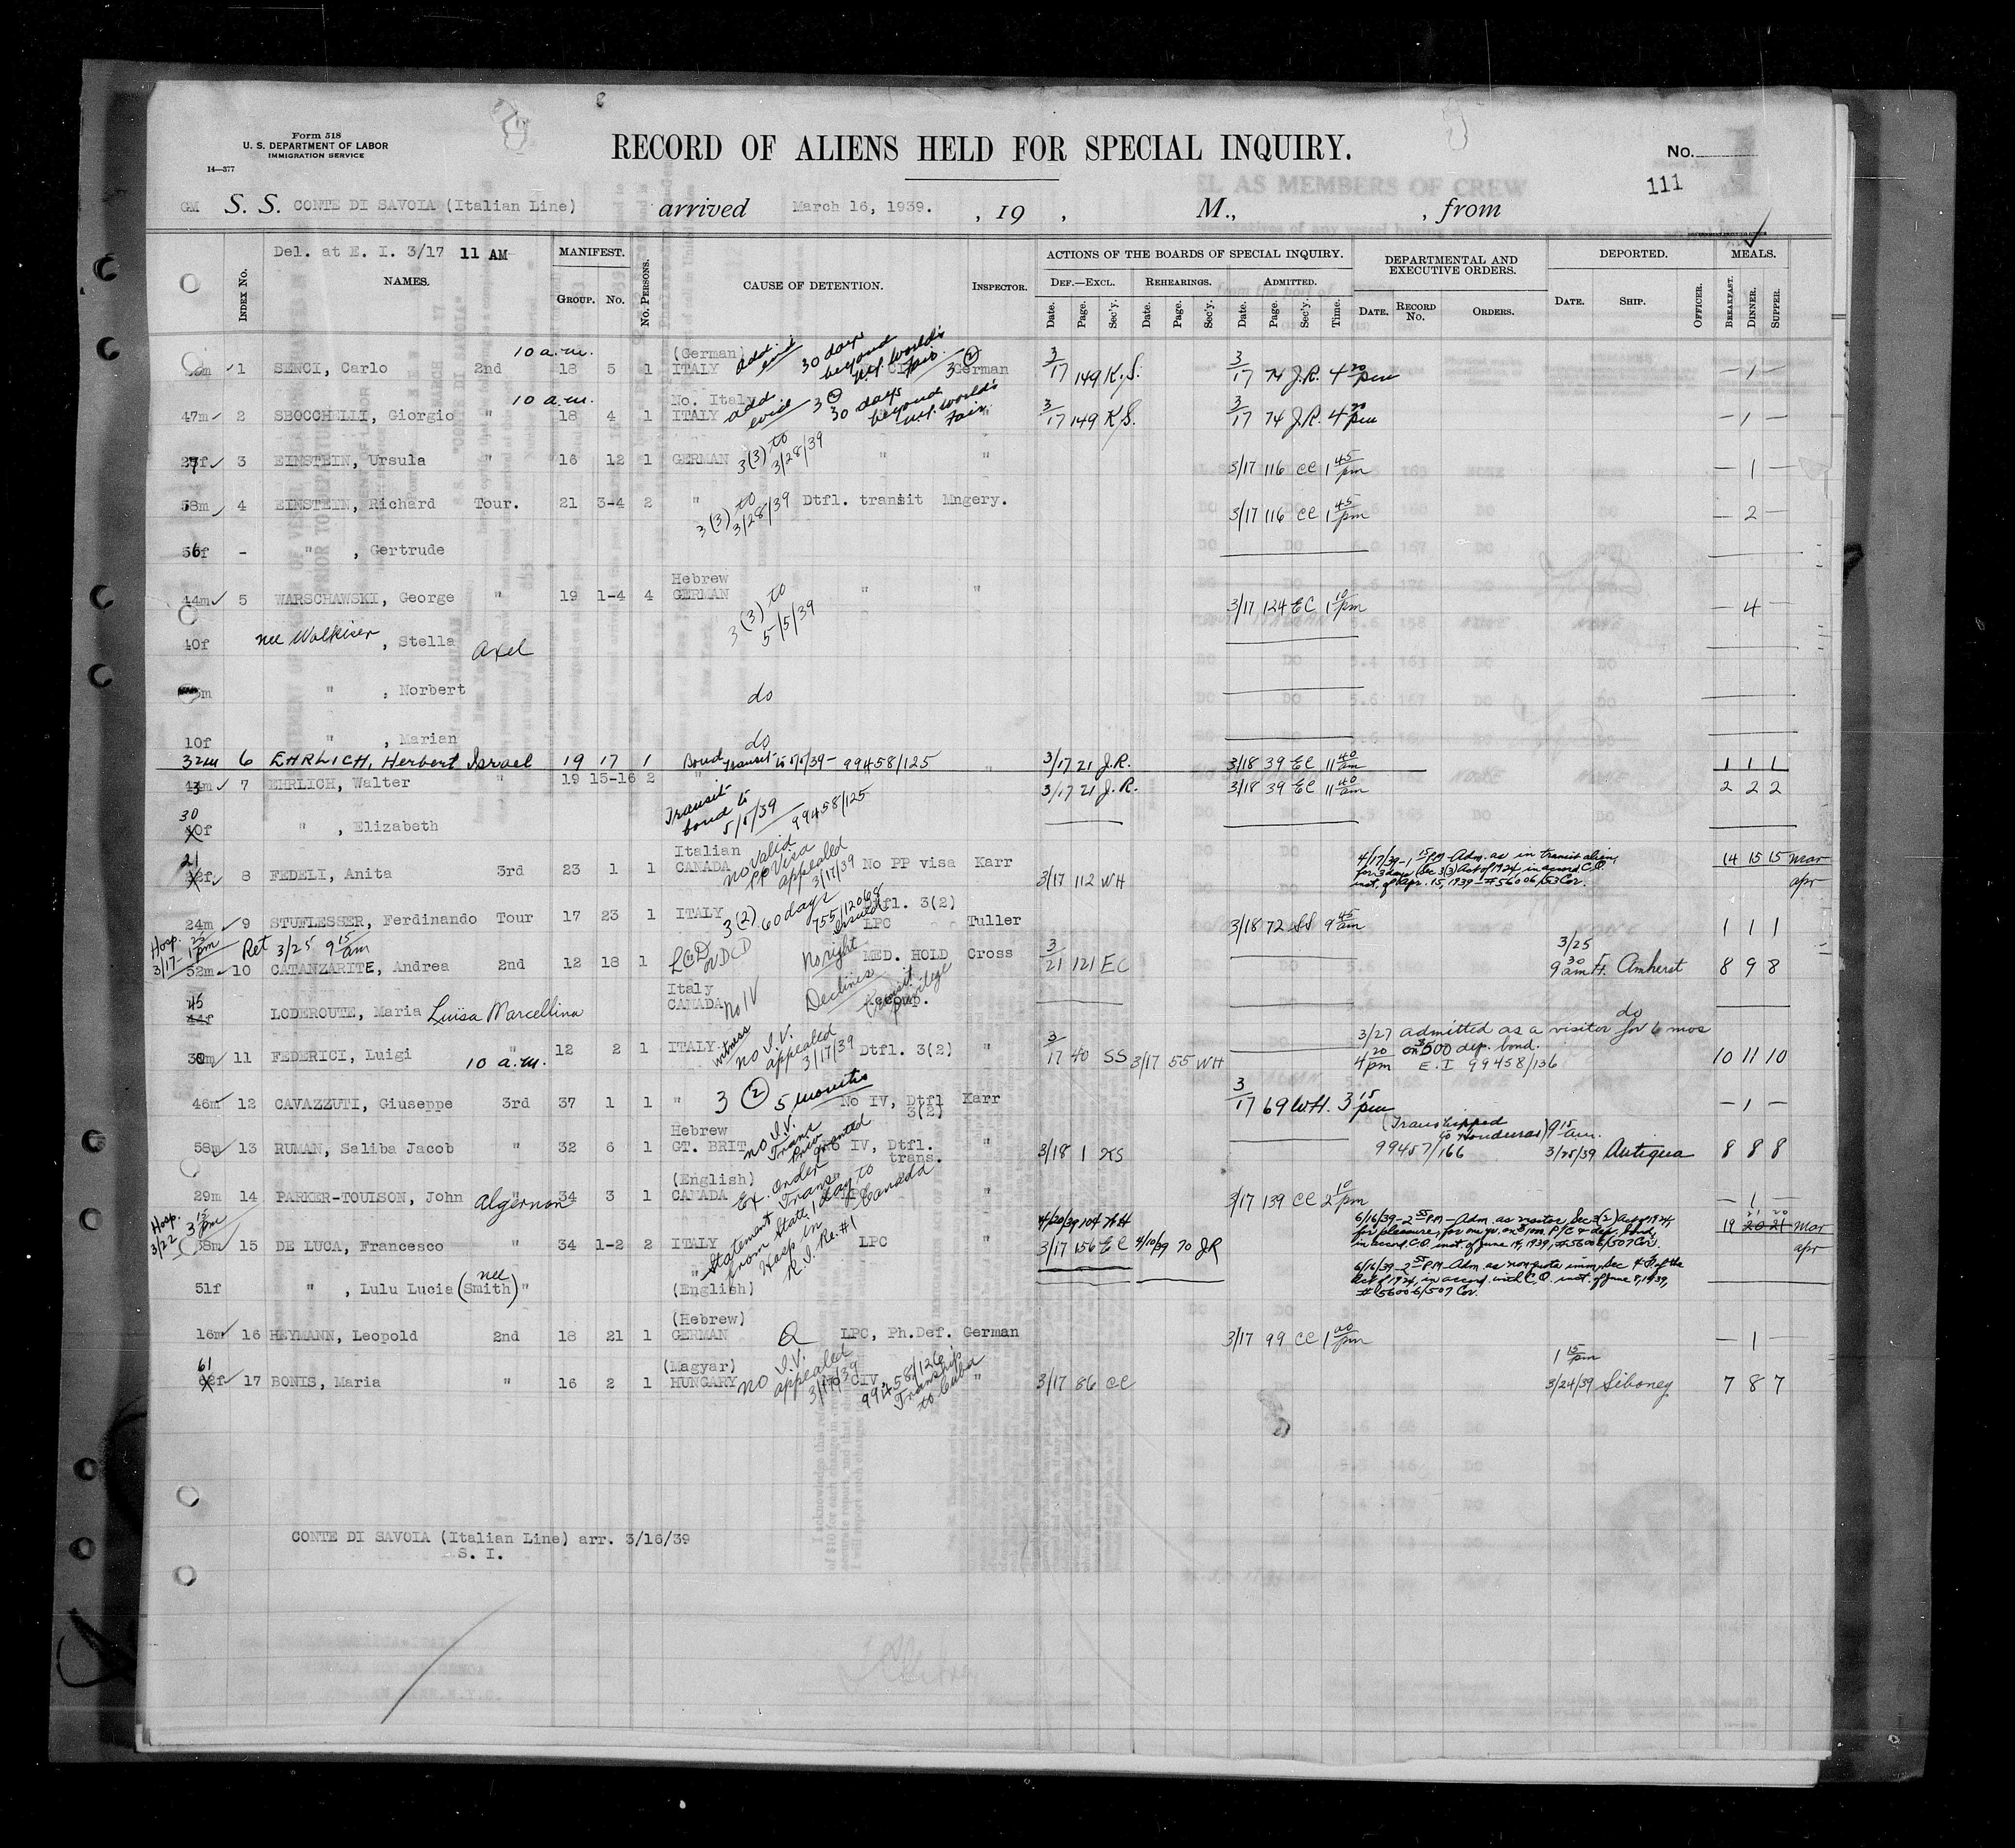 Form 518
U. S. DEPARTMENT OF LABOR
IMMIGRATION SERVICE
14—377
RECORD OF ALIENS HELD FOR SPECIAL INQUIRY.
No.
111
GM S. S. CONTE DI SAVOIA (Italian Line) arrived March 16, 1939. , 19 , M., , from
Del. at E. I. 3/17 11 AM
Index No. NAMES. MANIFEST. Group. No. No. Persons. CAUSE OF DETENTION. Inspector. ACTIONS OF THE BOARDS OF SPECIAL INQUIRY. DEPARTMENTAL AND EXECUTIVE ORDERS. DEPORTED. MEALS.
Def.—Excl. Rehearings. Admitted.
Date. Page. Sec'y. Date. Page. Sec'y. Date. Page. Sec'y. Time. Date. Record No. Orders. Date. Ship. Officer. Breakfast. Dinner. Supper.
10 a.m. (German) add. evid 30 days beyond N.Y. World's Fair 3 (2)
1 SENCI, Carlo 2nd 18 5 1 ITALY German 3/17 149 K.S. 3/17 74 J.R. 4 20 pm — 1 —
10 a.m. No. Italy add evid 3 (2) 30 days beyond N.Y. World's Fair
47m 2 SBOCCHELLI, Giorgio " 18 4 1 ITALY " 3/17 149 K.S. 3/17 74 J.R. 4 20 pm — 1 —
3 EINSTEIN, Ursula " 16 12 1 GERMAN 3(3) to 3/28/39 " " 3/17 116 CC 1 45 pm — 1 —
58m 4 EINSTEIN, Richard Tour. 21 3-4 2 " 3(3) to 3/28/39 Dtfl. transit Mngery. 3/17 116 CC 1 45 pm — 2 —
56f - " , Gertrude
Hebrew
44m 5 WARSCHAWSKI, George " 19 1-4 4 GERMAN 3(3) to 5/5/39 " " 3/17 124 EC 1 10 pm — 4 —
40f nee Walkiser , Stella
Axel
" , Norbert do
10f " , Marian do
32m 6 EHRLICH, Herbert Israel 19 17 1 Bond transit to 5/5/39 - 99458/125 " 3/17 21 J.R. 3/18 39 EC 11 40 am 1 1 1
7 EHRLICH, Walter " 19 15-16 2 " Transit bond to 5/5/39 99458/125 3/17 21 J.R. 3/18 39 EC 11 40 am 2 2 2
30
" , Elizabeth
21 Italian
8 FEDELI, Anita 3rd 23 1 1 CANADA No valid PP Visa appealed 3/17/39 No PP visa Karr 3/17 112 WH 14 15 15 Mar apr
4/17/39 - 1 15 PM - Adm. as in transit alien,
for 3 days Sec 3(3) Act of 1924 in accord C.O.
inst. of Apr. 15, 1939 - #56006/53 Cor.
24m 9 STUFLESSER, Ferdinando Tour 17 23 1 ITALY 3(2) 60 days 755/12068 issued Dtfl. 3(2) LPC Tuller 3/18 72 SS 9 45 am 1 1 1
Hosp. 3/17 - 1 25 pm Ret 3/25 9 15 am
52m 10 CATANZARITE, Andrea 2nd 12 18 1 LCD NDCD No right MED. HOLD Cross 3/21 121 EC 3/25 9 30 am Ft. Amherst 8 9 8
45 Italy
44f LODEROUTE, Maria Luisa Marcellina CANADA No IV Declines transit privilege Accomp. do
11 FEDERICI, Luigi " 10 a.m. 12 2 1 ITALY witness no I.V. appealed 3/17/39 Dtfl. 3(2) " 3/17 40 SS 3/17 55 WH 10 11 10
3/27 admitted as a visitor for 6 mos
4 20 pm on $500 dep. bond.
E.I 99458/136
46m 12 CAVAZZUTI, Giuseppe 3rd 37 1 1 " 3 (2) 5 months No IV, Dtfl 3(2) Karr 3/17 69 W.H. 3 15 pm — 1 —
Hebrew (Transhipped to Honduras) 9 15 am.
58m 13 RUMAN, Saliba Jacob " 32 6 1 GT. BRIT no I.V. Trans Priv granted No IV, Dtfl. trans. " 3/18 1 KS 99457/166 3/25/39 Antigua 8 8 8
(English)
29m 14 PARKER-TOULSON, John Algernon " 34 3 1 CANADA Ex. Order Trans. 1 day to Canada LPC " 3/17 139 CC 2 10 pm — 1 —
Hosp. 3/22 3 15 pm
58m 15 DE LUCA, Francesco " 34 1-2 2 ITALY Statement from State Hosp in R.I. Re. #1 LPC " 4/20/39 104 WH 3/17 156 EC 4/10/39 70 JR 19 21 20 Mar apr
6/16/39 - 2 55 PM - Adm. as visitor Sec 3(2) Act of 1924,
for pleasure, for one yr. on P/C & dep. bond,
in accord C.O. inst. of June 14, 1939, #56006/507 Cor.
51f " , Lulu Lucia (nee Smith) " " (English)
6/16/39 - 2 55 PM - Adm. as non quota imm, Sec 4 of the
Act of 1924, in accord. with C.O. inst. of June 8, 1939,
#56006/507 Cor.
(Hebrew)
16m 16 HEYMANN, Leopold 2nd 18 21 1 GERMAN LPC, Ph.Def. German 3/17 99 CC 1 00 pm — 1 —
61 (Magyar) 1 15 pm
17 BONIS, Maria " 16 2 1 HUNGARY no I.V. appealed 3/17/39 99458/126 Tranship to Cuba " 3/17 86 CC 3/24/39 Siboney 7 8 7
CONTE DI SAVOIA (Italian Line) arr. 3/16/39
S. I.